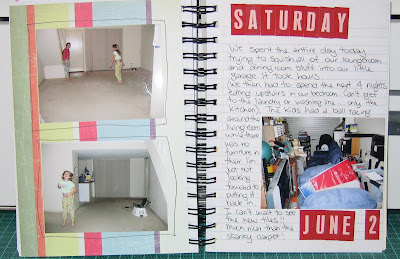 SATURDAY
We spent the entire day today
trying to squish all of our loungeroom
and dining room stuff into our little
garage. It took hours.
We then had to spend the next 4 nights
eating upstairs in our bedroom. Can't get
to the laundry or washing line... only the
kitchen). The kids had a ball racing
around the
living room
while there
was no
furniture in
there. I'm
just not
looking
forward to
putting it
back in.
I can't wait to see
the new tiles!!
Much nicer than the
stanky carpet!
JUNE 2